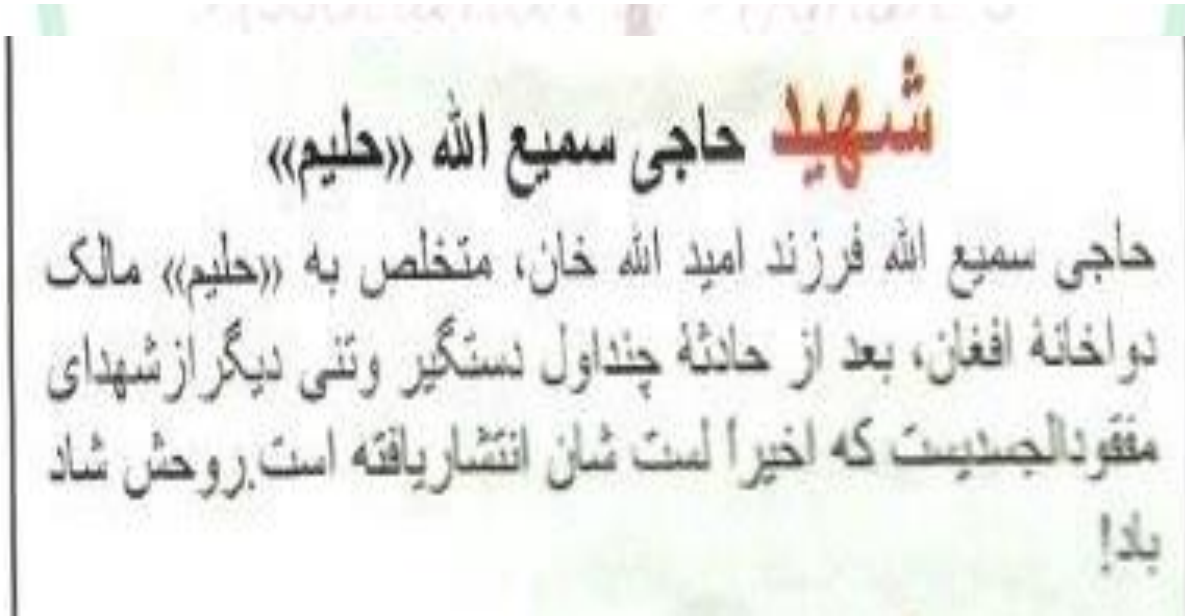 شهید حاجی سمیع الله «حلیم»
حاجی سمیع الله فرزند امید الله خان، متخلص به «حلیم» مالک
دواخانۀ افغان، بعد از حادثۀ چنداول دستگیر وتنی دیگر ازشهدای
مفقودالجسدیست که اخیراً لست شان انتشاریافته است.روحش شاد
باد!